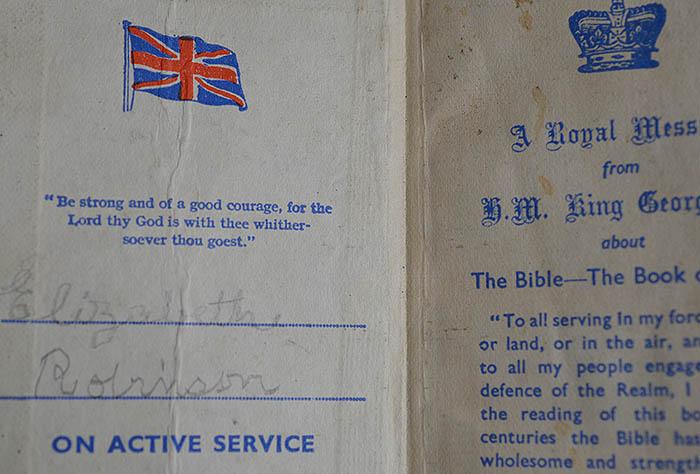 "Be strong and of a good courage, for the
Lord thy God is with thee whither-
soever thou goest."
Elizabeth
Robinson
ON ACTIVE SERVICE
A Royal Mess
from
H.M. King Georg
about
The Bible—The Book o
"To all serving in my forc
or land, or in the air, an
to all my people engage
defence of the Realm, I
the reading of this bo
centuries the Bible has
wholesome and strength